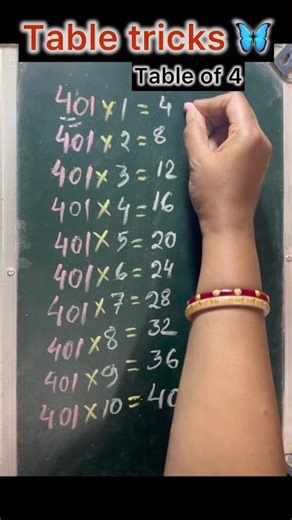 Table tricks 🦋
Table of 4
401 × 1 = 4
401 × 2 = 8
401 × 3 = 12
401 × 4 = 16
401 × 5 = 20
401 × 6 = 24
401 × 7 = 28
401 × 8 = 32
401 × 9 = 36
401 × 10 = 40